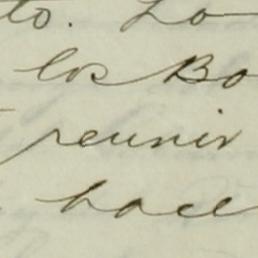 to. Lo
los Bo
reunir
hace